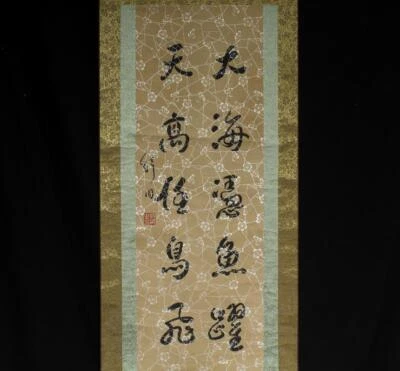 大海憑魚躍
天高任鳥飛
舒同